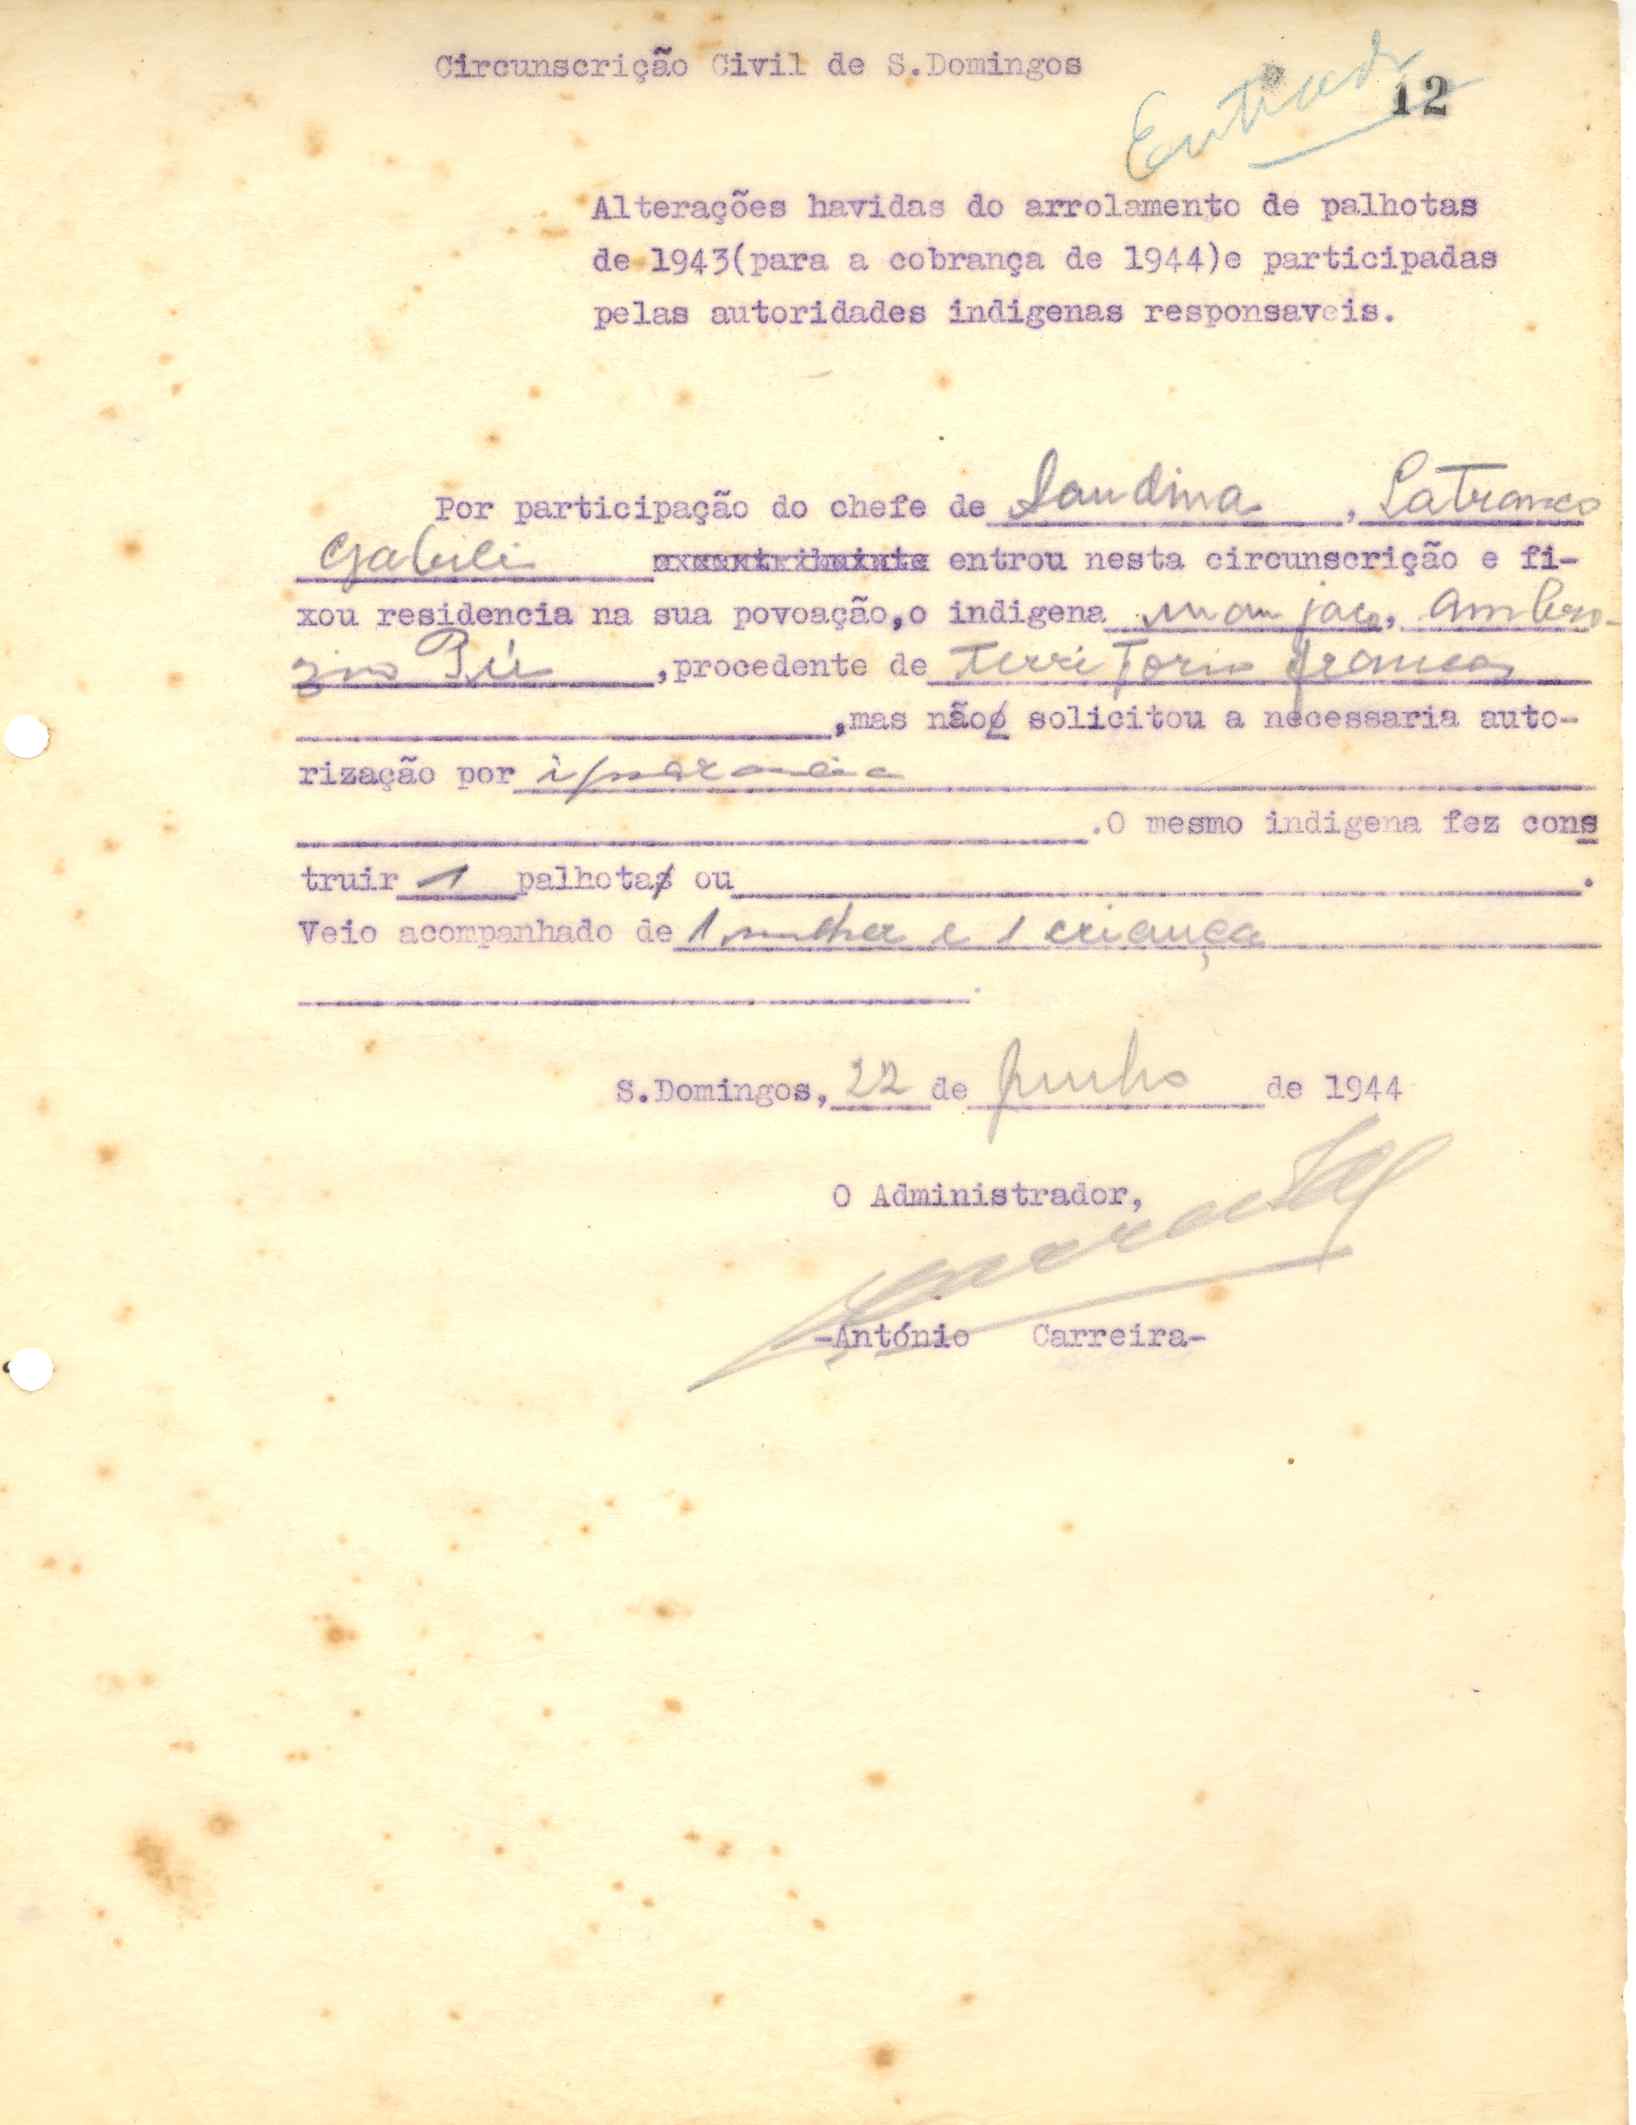 Circunscrição Civil de S.Domingos
Entrada
12
Alterações havidas do arrolamento de palhotas
de 1943(para a cobrança de 1944)e participadas
pelas autoridades indigenas responsaveis.
Por participação do chefe de , 
entrou nesta circunscrição e fi-
xou residencia na sua povoação,o indigena manjaco, Ambro-
zio ,procedente de Territorio francez
,mas não solicitou a necessaria auto-
rização por ignorancia
.O mesmo indigena fez cons
truir 1 palhota ou .
Veio acompanhado de 1 mulher e 1 criança
.
S.Domingos, 22 de Junho de 1944
O Administrador,
-António Carreira-